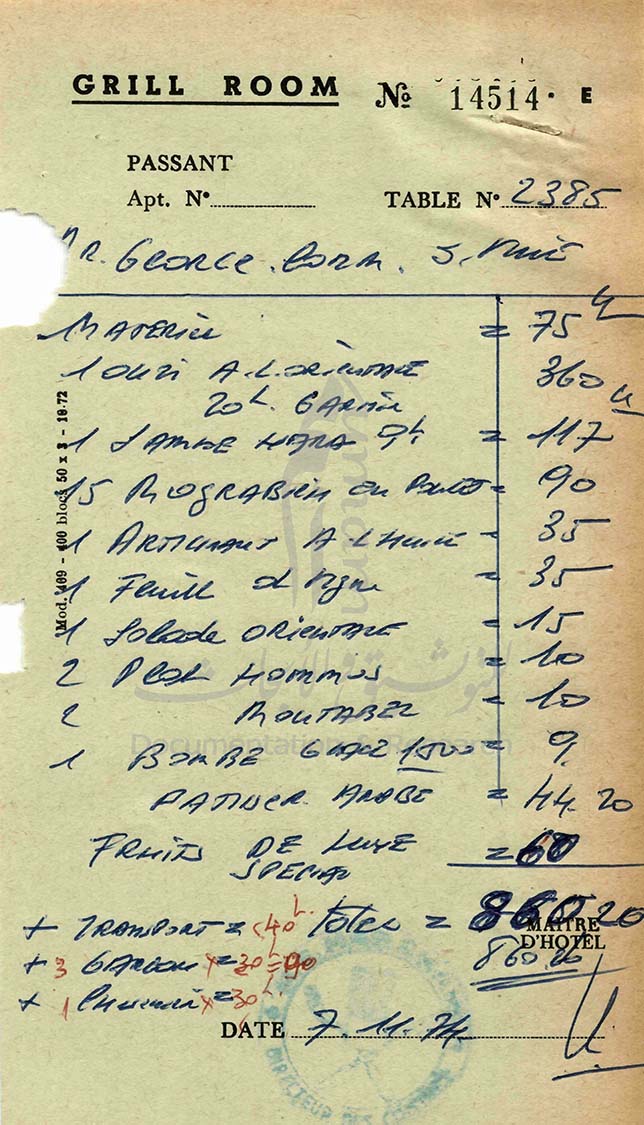 GRILL ROOM No 14514 · E
PASSANT
Apt. No
TABLE No 2385
MR. GEORGE. CORM.
MATERIEL = 75
1 OUZI A.L.ORIENTALE 360
20 L. GARNIE
1 9 L = 117
15 MOGRABIEH = 90
1 ARTICHAUT A L'HUILE = 35
1 Feuill d Vigne = 35
1 Salade ORIENTALE = 15
2 Plat HOMMUS = 10
2 MOUTABEL = 10
1 BOMBE GLACE = 9.
ARABE = 44.20
FRUITS DE LUXE = 60
SPECIAL
+ TRANSPORT = 40 L. Total = 860 20
MAITRE
D'HOTEL
+ 3 GARCON x 30 L = 90
860.20
+ 1 x = 30 L.
DATE 7.11.74.
Mod. 109 - 400 blocs 50 x 3 - 10-72
Documentation & Research
للتوثيق والأبحاث
DIRECTEUR DES